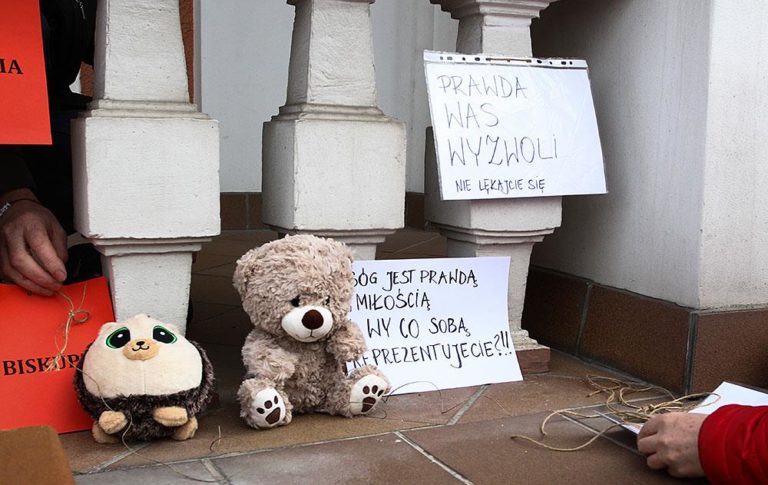 PRAWDA
WAS
WYZWOLI
NIE LĘKAJCIE SIĘ
BÓG JEST PRAWDĄ
MIŁOŚCIĄ
WY CO SOBĄ
REPREZENTUJECIE?!!
BISKUP